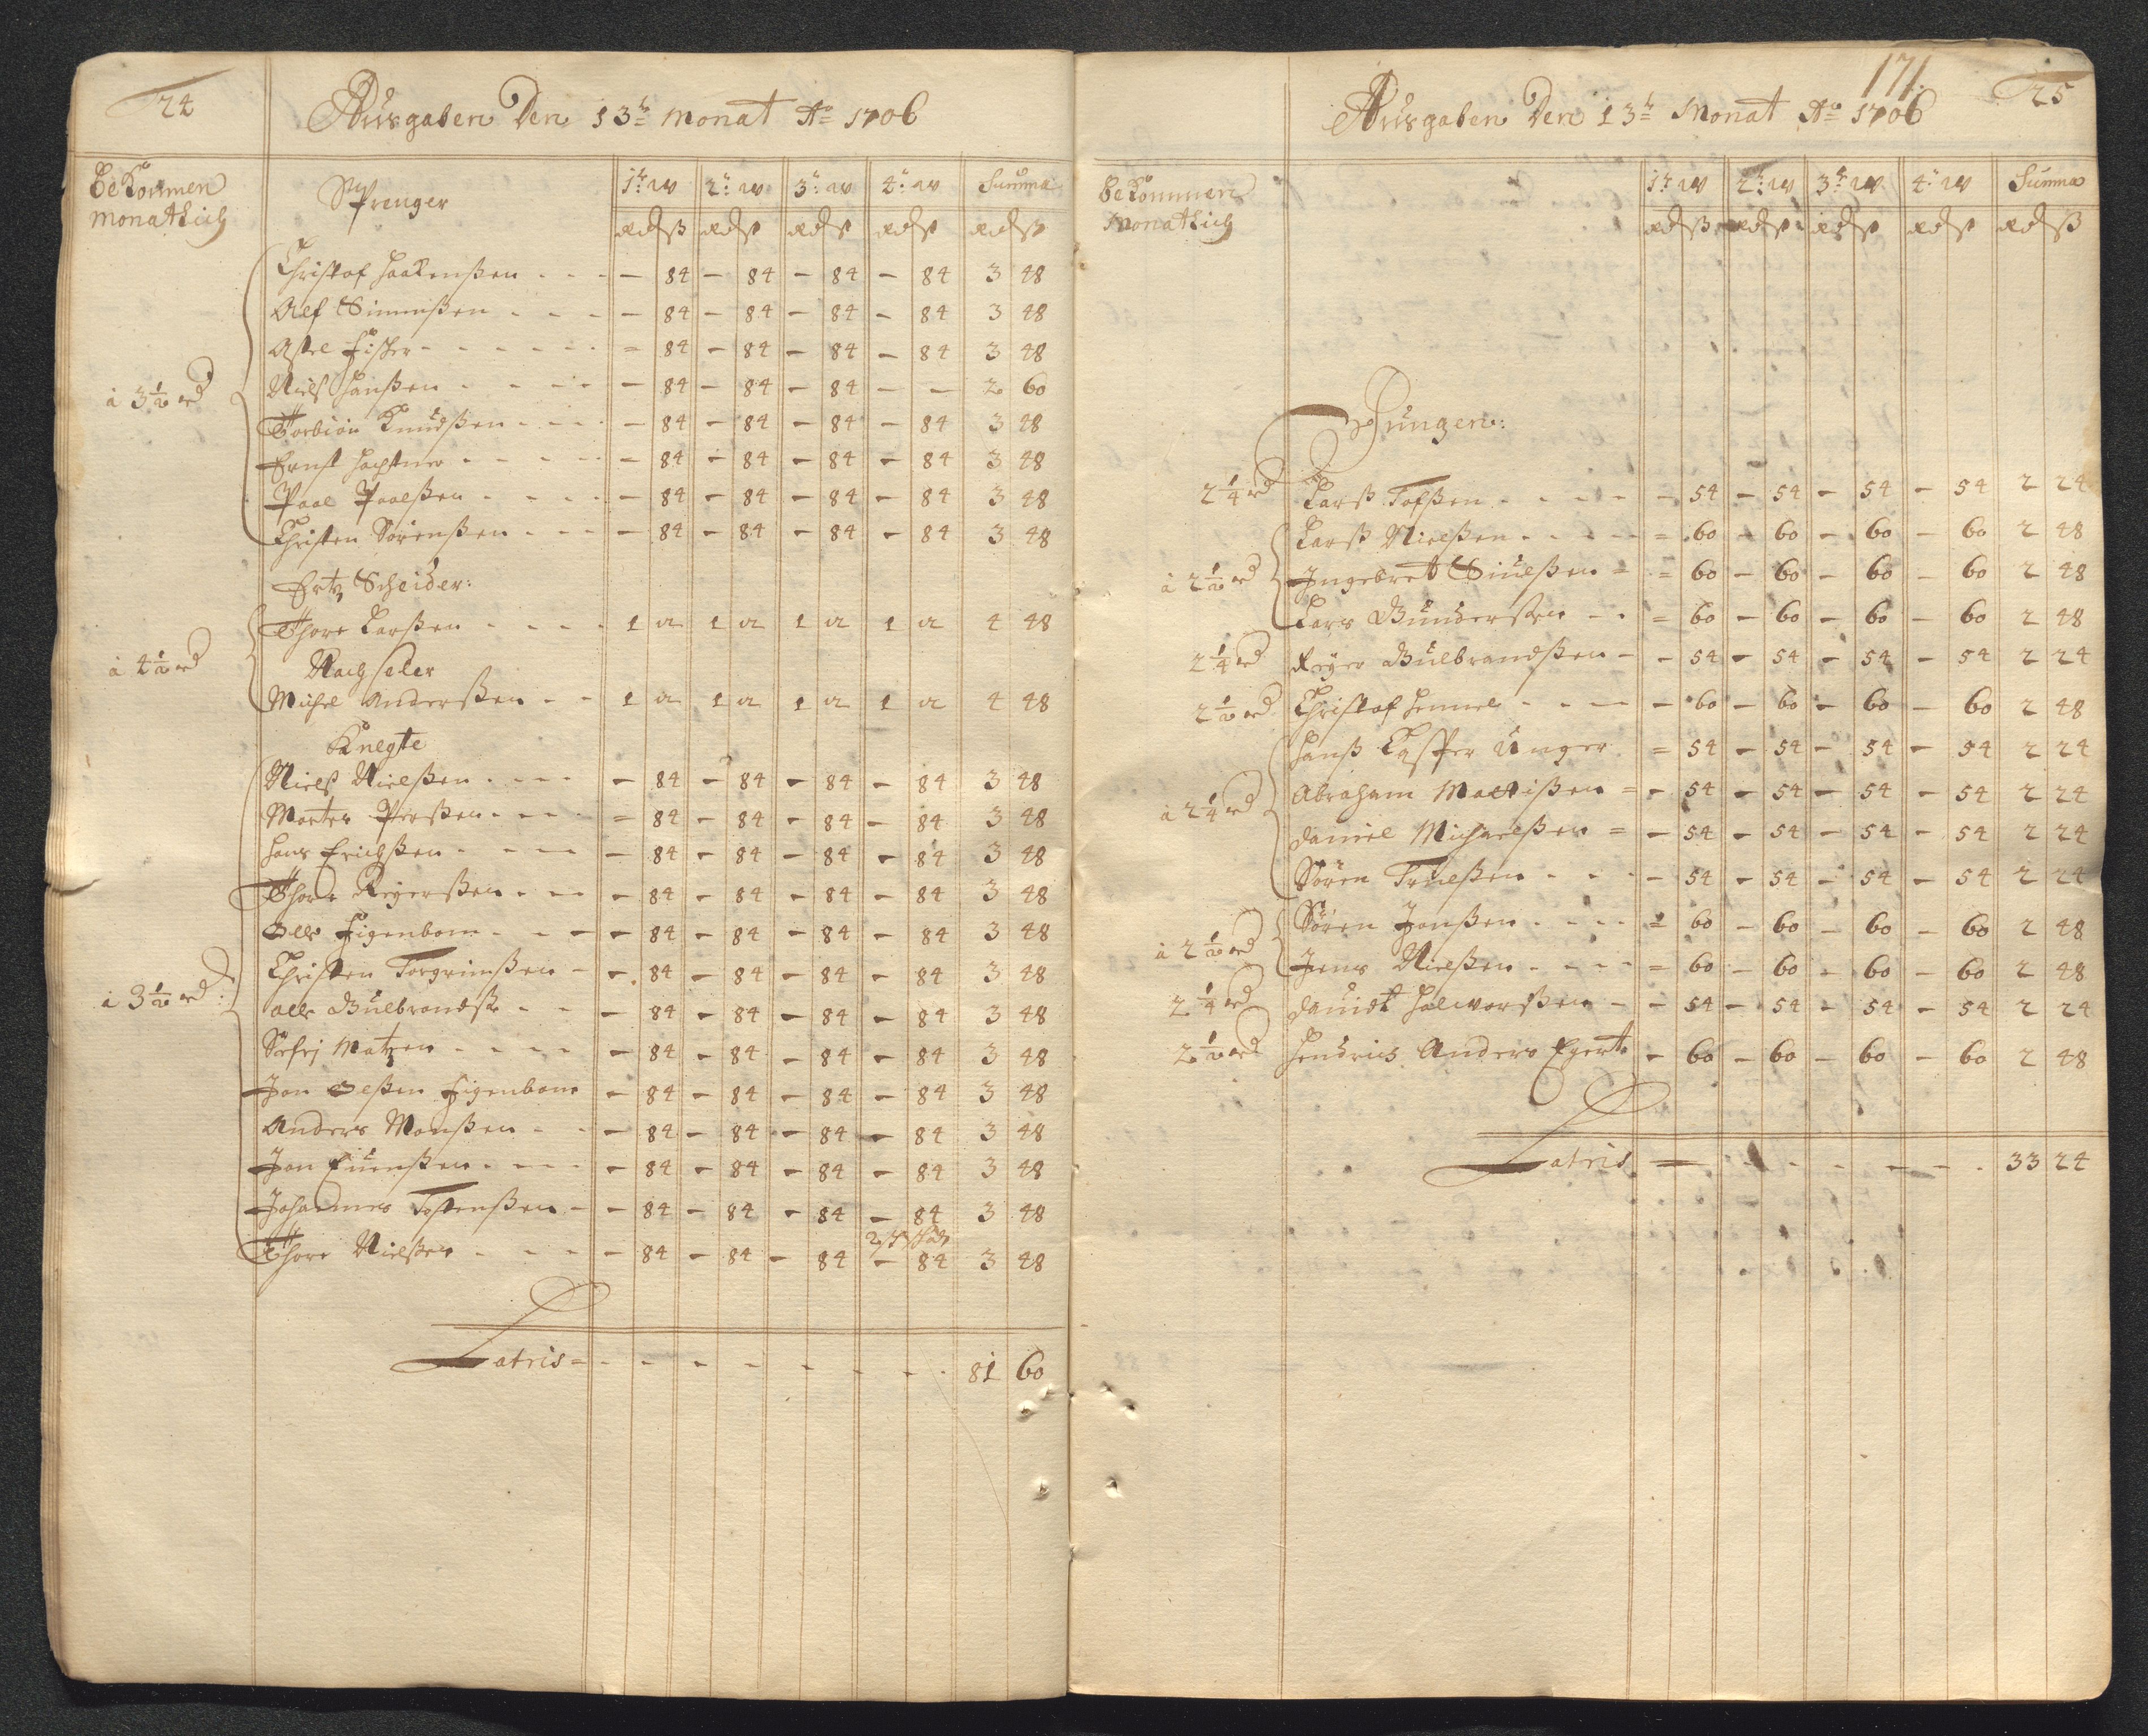 24
Ausgaben Den 13t Monat Ao 1706
Bekommen monatlich
Sprenger
1t w 2t w 3t w 4t w Summa
rd ß rd ß rd ß rd ß rd ß
Christof Haakenßen - - - - 84 - 84 - 84 - 84 3 48
Alf Simmißen - - - - 84 - 84 - 84 - 84 3 48
Axel Fisker - - - - - - = 84 - 84 - 84 - 84 3 48
à 3½ rd
Niels Hanßen - - - - - 84 - 84 - 84 - - 2 60
Torbiön Knudßen - - - - 84 - 84 - 84 - 84 3 48
Ernst - - - - - 84 - 84 - 84 - 84 3 48
Paal Paalßen - - - - - 84 - 84 - 84 - 84 3 48
Christen Sörenßen - - - - 84 - 84 - 84 - 84 3 48
Ertz Scheider:
Thore Larßen - - - - 1 12 1 12 1 12 1 12 4 48
à 4½ rd
Nachseler
Michel Anderßen - - 1 12 1 12 1 12 1 12 4 48
Knegte
Nielß Nielßen - - - - - 84 - 84 - 84 - 84 3 48
Morten Perßen - - - = 84 - 84 - 84 - 84 3 48
Hans Erichßen - - - - - 84 - 84 - 84 - 84 3 48
Thore Reyerßen - - - - 84 - 84 - 84 - 84 3 48
Olle Figenbom - - - - 84 - 84 - 84 - 84 3 48
Christen Torgrimßen - - 84 - 84 - 84 - 84 3 48
à 3½ rd:
Olle Gulbrandß - - - 84 - 84 - 84 - 84 3 48
Matzen - - - - - 84 - 84 - 84 - 84 3 48
Jon Olßen Figenbom - 84 - 84 - 84 - 84 3 48
Anders Monßen - - - 84 - 84 - 84 - 84 3 48
Jon Euenßen - - - - 84 - 84 - 84 - 84 3 48
Johannes Tostenßen - - 84 - 84 - 84 - 84 3 48
Thore Nielßen - - - - - 84 - 84 - 84 - 84 3 48
Latris = - - - - - - - - 81 60
171.
25
Ausgaben Den 13t Monat Ao 1706
Bekommen Monatlich
1t w 2t w 3t w 4t w Summa
rd ß rd ß rd ß rd ß rd ß
Jungen:
2¼ rd Larß Tofßen - - - - - 54 - 54 - 54 - 54 2 24
Larß Nielßen - - - - = 60 - 60 - 60 - 60 2 48
à 2½ rd Ingebret Siulßen = = 60 - 60 - 60 - 60 2 48
Lars Gunderßen - - = 60 - 60 - 60 - 60 2 48
2¼ rd Reyer Gulbrandßen - - 54 - 54 - 54 - 54 2 24
2½ rd Christof Hemmel - - - - 60 - 60 - 60 - 60 2 48
Hanß Casper Unger = 54 - 54 - 54 - 54 2 24
à 2¼ rd Abraham Mattißen = - 54 - 54 - 54 - 54 2 24
Daniel Michaelßen = - 54 - 54 - 54 - 54 2 24
Sören Truelßen - - - 54 - 54 - 54 - 54 2 24
Sören Jonßen - - - - = 60 - 60 - 60 - 60 2 48
à 2½ rd
Jens Nielßen - - - - = 60 - 60 - 60 - 60 2 48
2¼ rd Dauidt Halworßen - - 54 - 54 - 54 - 54 2 24
2½ rd Hendrics Anders Egert - 60 - 60 - 60 - 60 2 48
Latris - - - - - - - 33 24